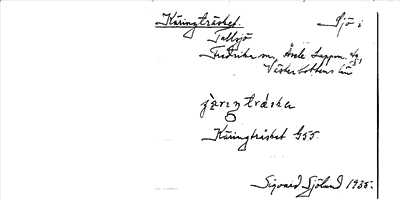 Käringträsket. Sjö i
Tallsjö
Fredrika sn, Åsele Lappm. tg,
Västerbottens län
Käringträsket G55.
Sigvard Sjölund 1935.